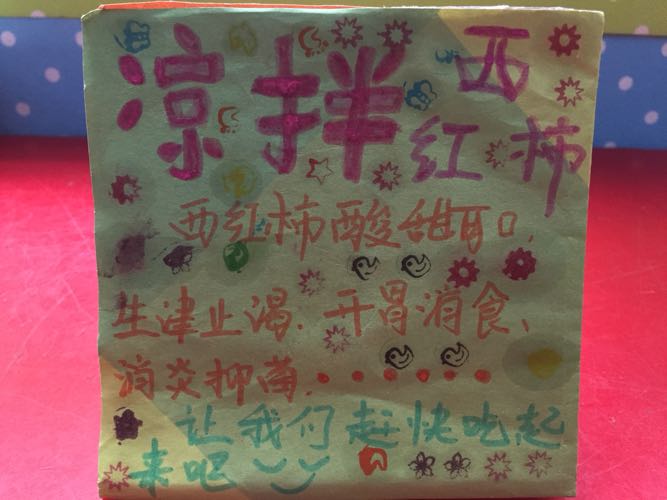 凉拌西红柿
西红柿酸甜可口、
生津止渴、开胃消食、
消炎抑菌. ......
让我们赶快吃起
来吧